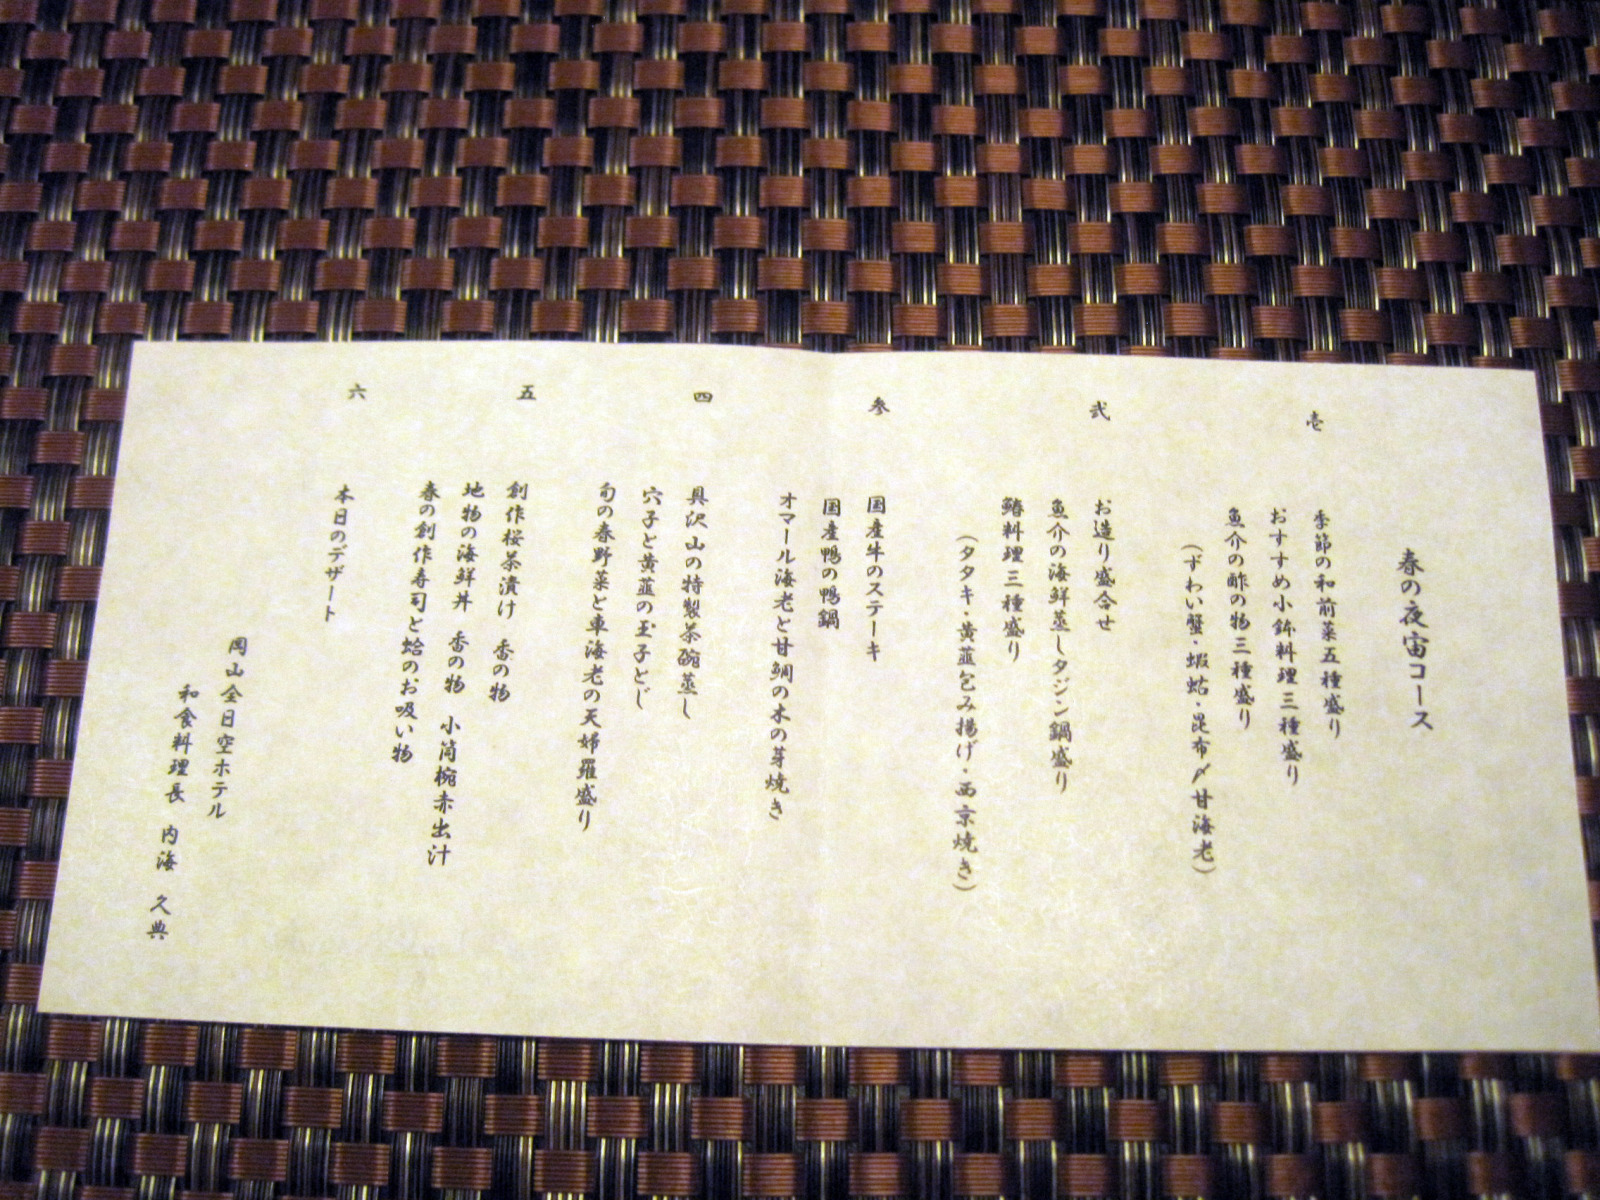 春の夜宙コース
壱
季節の和前菜五種盛り
おすすめ小鉢料理三種盛り
魚介の酢の物三種盛り
(ずわい蟹・蝦蛄・昆布〆甘海老)
弐
お造り盛合せ
魚介の海鮮蒸しタジン鍋盛り
鰆料理三種盛り
(タタキ・黄韮包み揚げ・西京焼き)
参
国産牛のステーキ
国産鴨の鴨鍋
オマール海老と甘鯛の木の芽焼き
四
具沢山の特製茶碗蒸し
穴子と黄韮の玉子とじ
旬の春野菜と車海老の天婦羅盛り
五
創作桜茶漬け 香の物
地物の海鮮丼 香の物 小筒椀赤出汁
春の創作寿司と蛤のお吸い物
六
本日のデザート
岡山全日空ホテル
和食料理長 内海 久典